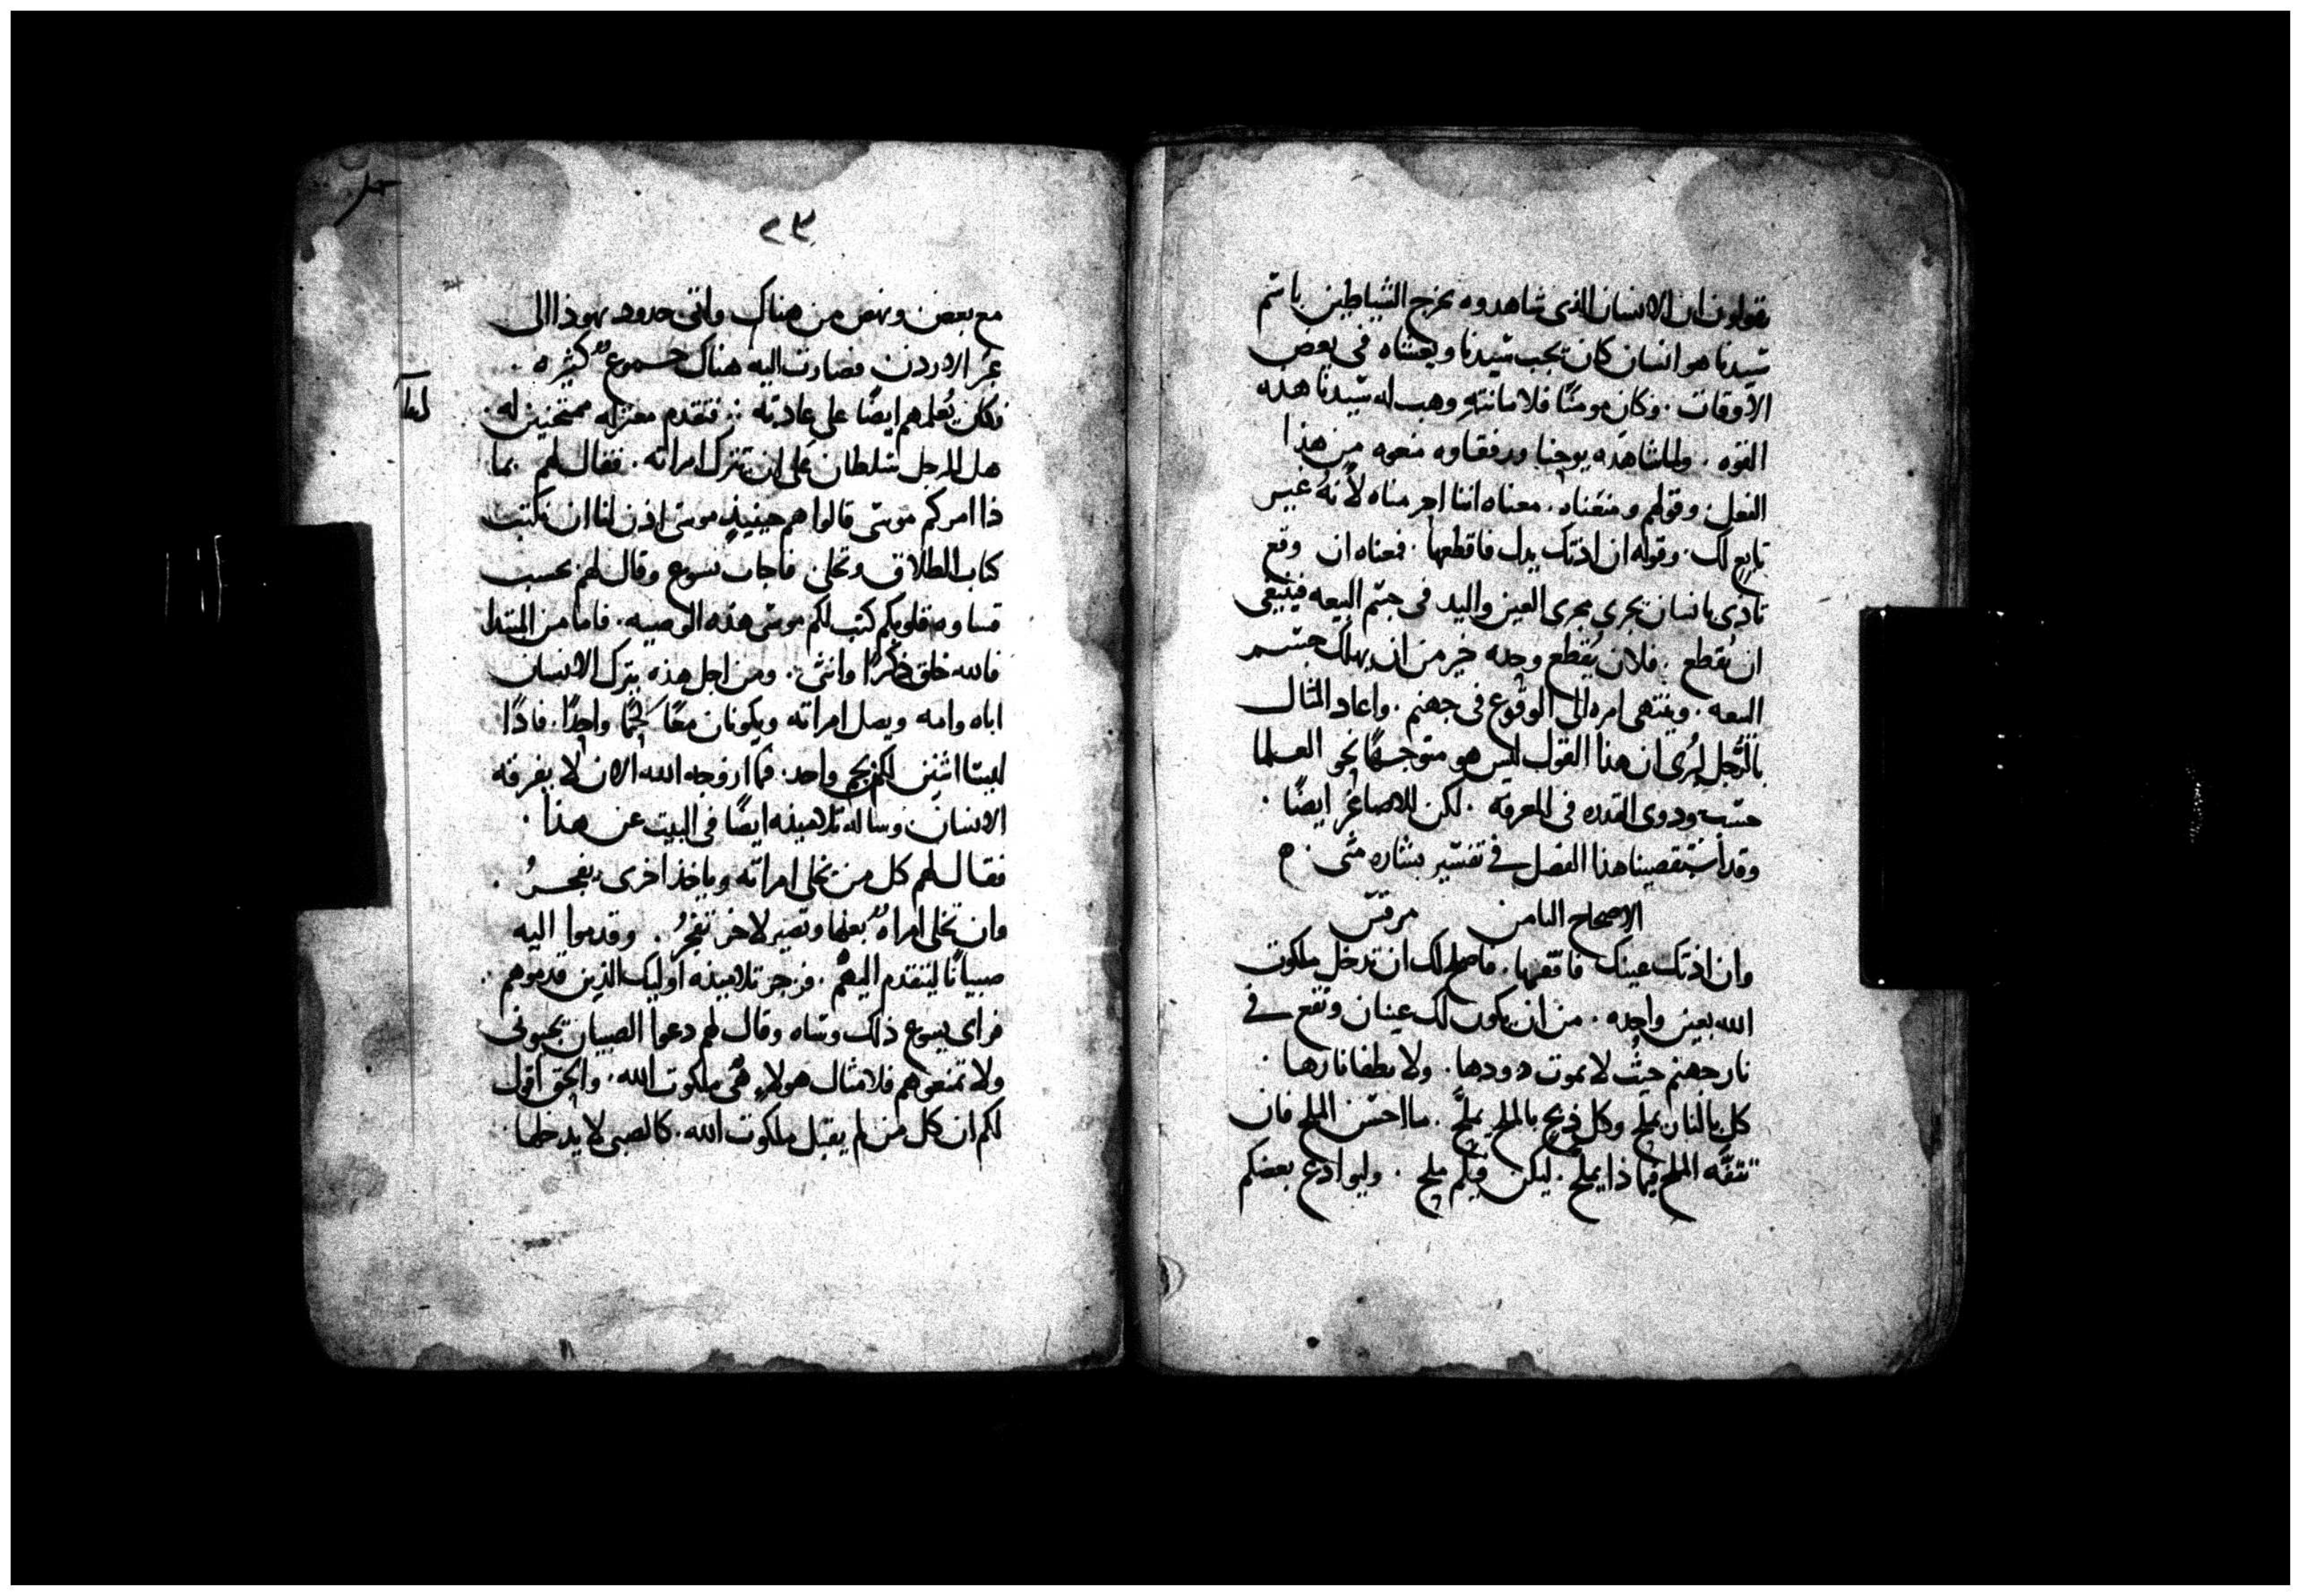 يقولون ان الانسان الذى شاهدوه يخرج الشياطين باسم
سيدنا هو انسان كان يحب سيدنا ويغشاه فى بعض
الاوقات . وكان مومنًا فلامانته وهب له سيدنا هذه
القوه . ولما شاهده يوحنا ورفقاوه منعوه من هذا
الفعل . وقولهم ومنعناه . معناه اننا احرمناه لأنهُ غير
تابع لك . وقوله ان اذتك يدك فاقطعها . فمعناه ان وقع
تاذى بانسان يجرى مجرى العين واليد فى جسم البيعه فينبغى
ان يُقطع . فلان يُقطع وحده خير من ان يهلك جسم
البيعه . وينتهى امره الى الوقوع فى جهنم . واعاد المثال
بالرجل ليُرى ان هذا القول ليس هو متوجهًا نحو العلما
حسب وذوى القدره فى المعرفه . لكن للاصاغر ايضًا .
وقد أستقصينا هذا الفصل فى تفسير بشاره متى .
الاصحاح الثامن مرقس
وان اذتك عينك فاقلعها . فاصلح لك ان تدخل ملكوت
الله بعين واحده . من ان يكون لك عينان وتقع فى
نار جهنم حيثُ لا يموت دودها . ولا يطفا نارها .
كل بالنار يملح وكل ذبيح بالملح يملَّح . ما احسن الملح فان
تتفّه الملح فبماذا يملَّح . ليكن فيكم ملح . وليوادع بعضكم
٢٣
مع بعض ونهض من هناك واتى حدود يهوذا الى
عبر الاردن فصارت اليه هناك جموعٌ كثيره .
فكان يُعلمهم ايضًا على عادته . فتقدم معتزله ممتحنين له .
هل للرجل سلطان على ان يترك امراته . فقال لهم بما
ذا امركم موسى قالوا هم حينيذٍ موسى اذن لنا ان نكتب
كتاب الطلاق ونخلى فاجاب يسوع وقال لهم بحسب
قساوه قلوبكم كتب لكم موسى هذه الوصيه . فاما من المبتدا
فالله خلق ذكرًا وانثى . ومن اجل هذه يترك الانسان
اباه وامه ويصل امراته ويكونان معًا لحمًا واحدًا . فاذًا
ليستا اثنين لكن لحم واحد . فما ازوجه الله الان لا يفرقه
الانسان وساله تلاميذه ايضًا فى البيت عن هذا .
فقال لهم كل من يخلى امراته وياخذ اخرى يفجرُ .
وان تخلى امراهٌ بعلها وتصير لاخر تفجرُ . وقدموا اليه
صبيانًا ليتقدم اليهم . فزجر تلاميذه اوليك الذين قدموهم .
فراى يسوع ذلك وساه وقال لهم دعوا الصبيان يجيونى
ولا تمنعوهم فلامثال هولاءِ هى ملكوت الله . والحق اقول
لكم ان كل من لم يقبل ملكوت الله . كالصبى لا يدخلها